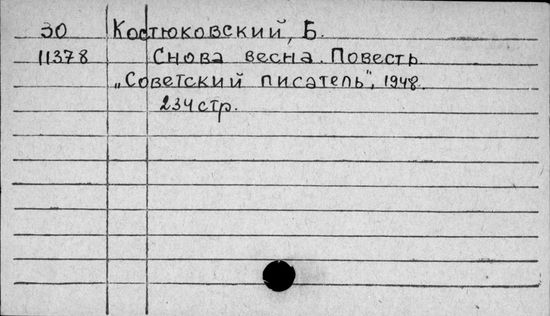 30 Костюковский, Б.
11378 Снова весна. Повесть.
„Советский писатель", 1948.
234 стр.